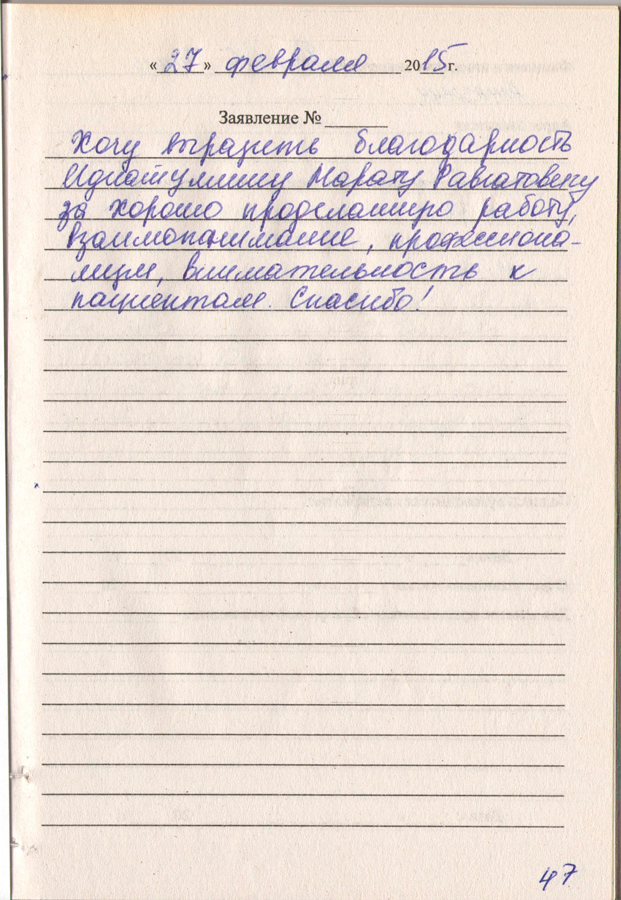 « 27 » февраля 2015 г.
Заявление № ______
Хочу выразить благодарность
Идиатуллину Марату Равкатовичу
за хорошо проделанную работу,
взаимопонимание, профессиона-
лизм, внимательность к
пациентам. Спасибо!
47